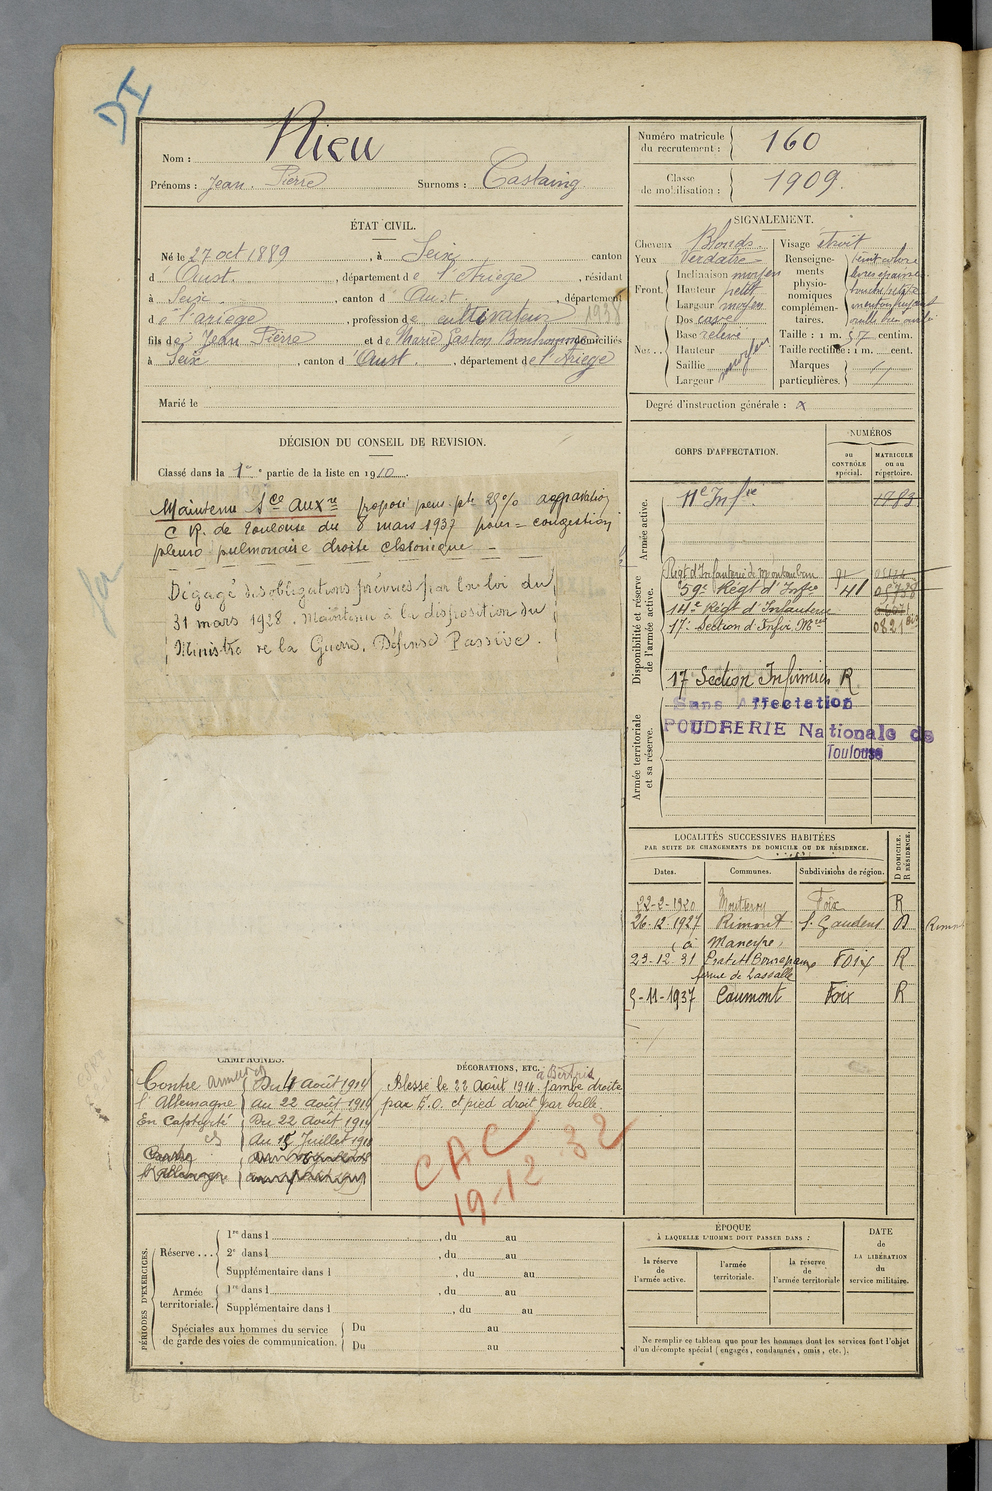 DI
Nom : Rieu
Prénoms : Jean Pierre Surnoms : Castaing
Numéro matricule du recrutement : 160
Classe de mobilisation : 1909.
ÉTAT CIVIL.
Né le 27 oct 1889, à Seix, canton
d'Oust, département de l'Ariege, résidant
à Seix, canton d'Oust, département
de l'ariege, profession de cultivateur 1938
fils de Jean Pierre et de Marie domiciliés
à Seix, canton d'Oust, département de l'Ariege
Marié le
SIGNALEMENT.
Cheveux Blonds
Yeux Verdatre
Front. Inclinaison moyen
Hauteur petit
Largeur moyen
Nez.. Dos cave
Base relevé
Hauteur
Saillie
Largeur
moyen
Visage étroit
Renseignements physionomiques complémentaires. teint coloré
Taille : 1 m. 57 centim.
Taille rectifiée : 1 m. cent.
Marques particulières.
Degré d'instruction générale : x
DÉCISION DU CONSEIL DE REVISION.
Classé dans la 1re partie de la liste en 1910.
Maintenu Sce Auxre proposé pens. pte 25% aggravation
C R. de Toulouse du 8 mars 1937 pour = congestion
pleuro pulmonaire droite chronique -
Dégagé des obligations prévues par la loi du
31 mars 1928. Maintenu à la disposition du
Ministre de la Guerre. Défense Passive.
CORPS D'AFFECTATION.
NUMÉROS
au CONTRÔLE spécial.
MATRICULE ou au répertoire.
Armée active.
11e Infie 1783
Disponibilité et réserve de l'armée active.
Regt d'Infanterie de Montauban
59e Régt d'Infie 41
14e Régt d'Infanterie
17e Section d'Infir. Mres
17 Section Infirmiers R
Armée territoriale et sa réserve.
Sans Affectation
POUDRERIE Nationale de
Toulouse
LOCALITÉS SUCCESSIVES HABITÉES
PAR SUITE DE CHANGEMENTS DE DOMICILE OU DE RÉSIDENCE.
Dates. Communes. Subdivisions de région. D DOMICILE. R RÉSIDENCE.
22-2-1920 Foix R
26-12-1927 Rimont St Gaudens D
(à Maneyre)
23-12-31 Prat et Bonrepaux Foix R
ferme de Lassalle
5-11-1937 Caumont Foix R
CAMPAGNES.
Contre Du 4 août 1914
l'Allemagne au 22 août 1914
En Captivité Du 22 août 1914
au 15 Juillet 1918
DÉCORATIONS, ETC.
à Bertrix
Blessé le 22 Août 1914. jambe droite
par E.O. et pied droit par balle.
CAC
19-12-32
PÉRIODES D'EXERCICES.
Réserve... 1re dans l , du au
2e dans l , du au
Supplémentaire dans l , du au
Armée territoriale. 1re dans l , du au
Supplémentaire dans l , du au
Spéciales aux hommes du service de garde des voies de communication. Du au
Du au
ÉPOQUE
À LAQUELLE L'HOMME DOIT PASSER DANS :
la réserve de l'armée active.
l'armée territoriale.
la réserve de l'armée territoriale
DATE de LA LIBÉRATION du service militaire.
Ne remplir ce tableau que pour les hommes dont les services font l'objet
d'un décompte spécial (engagés, condamnés, omis, etc.).